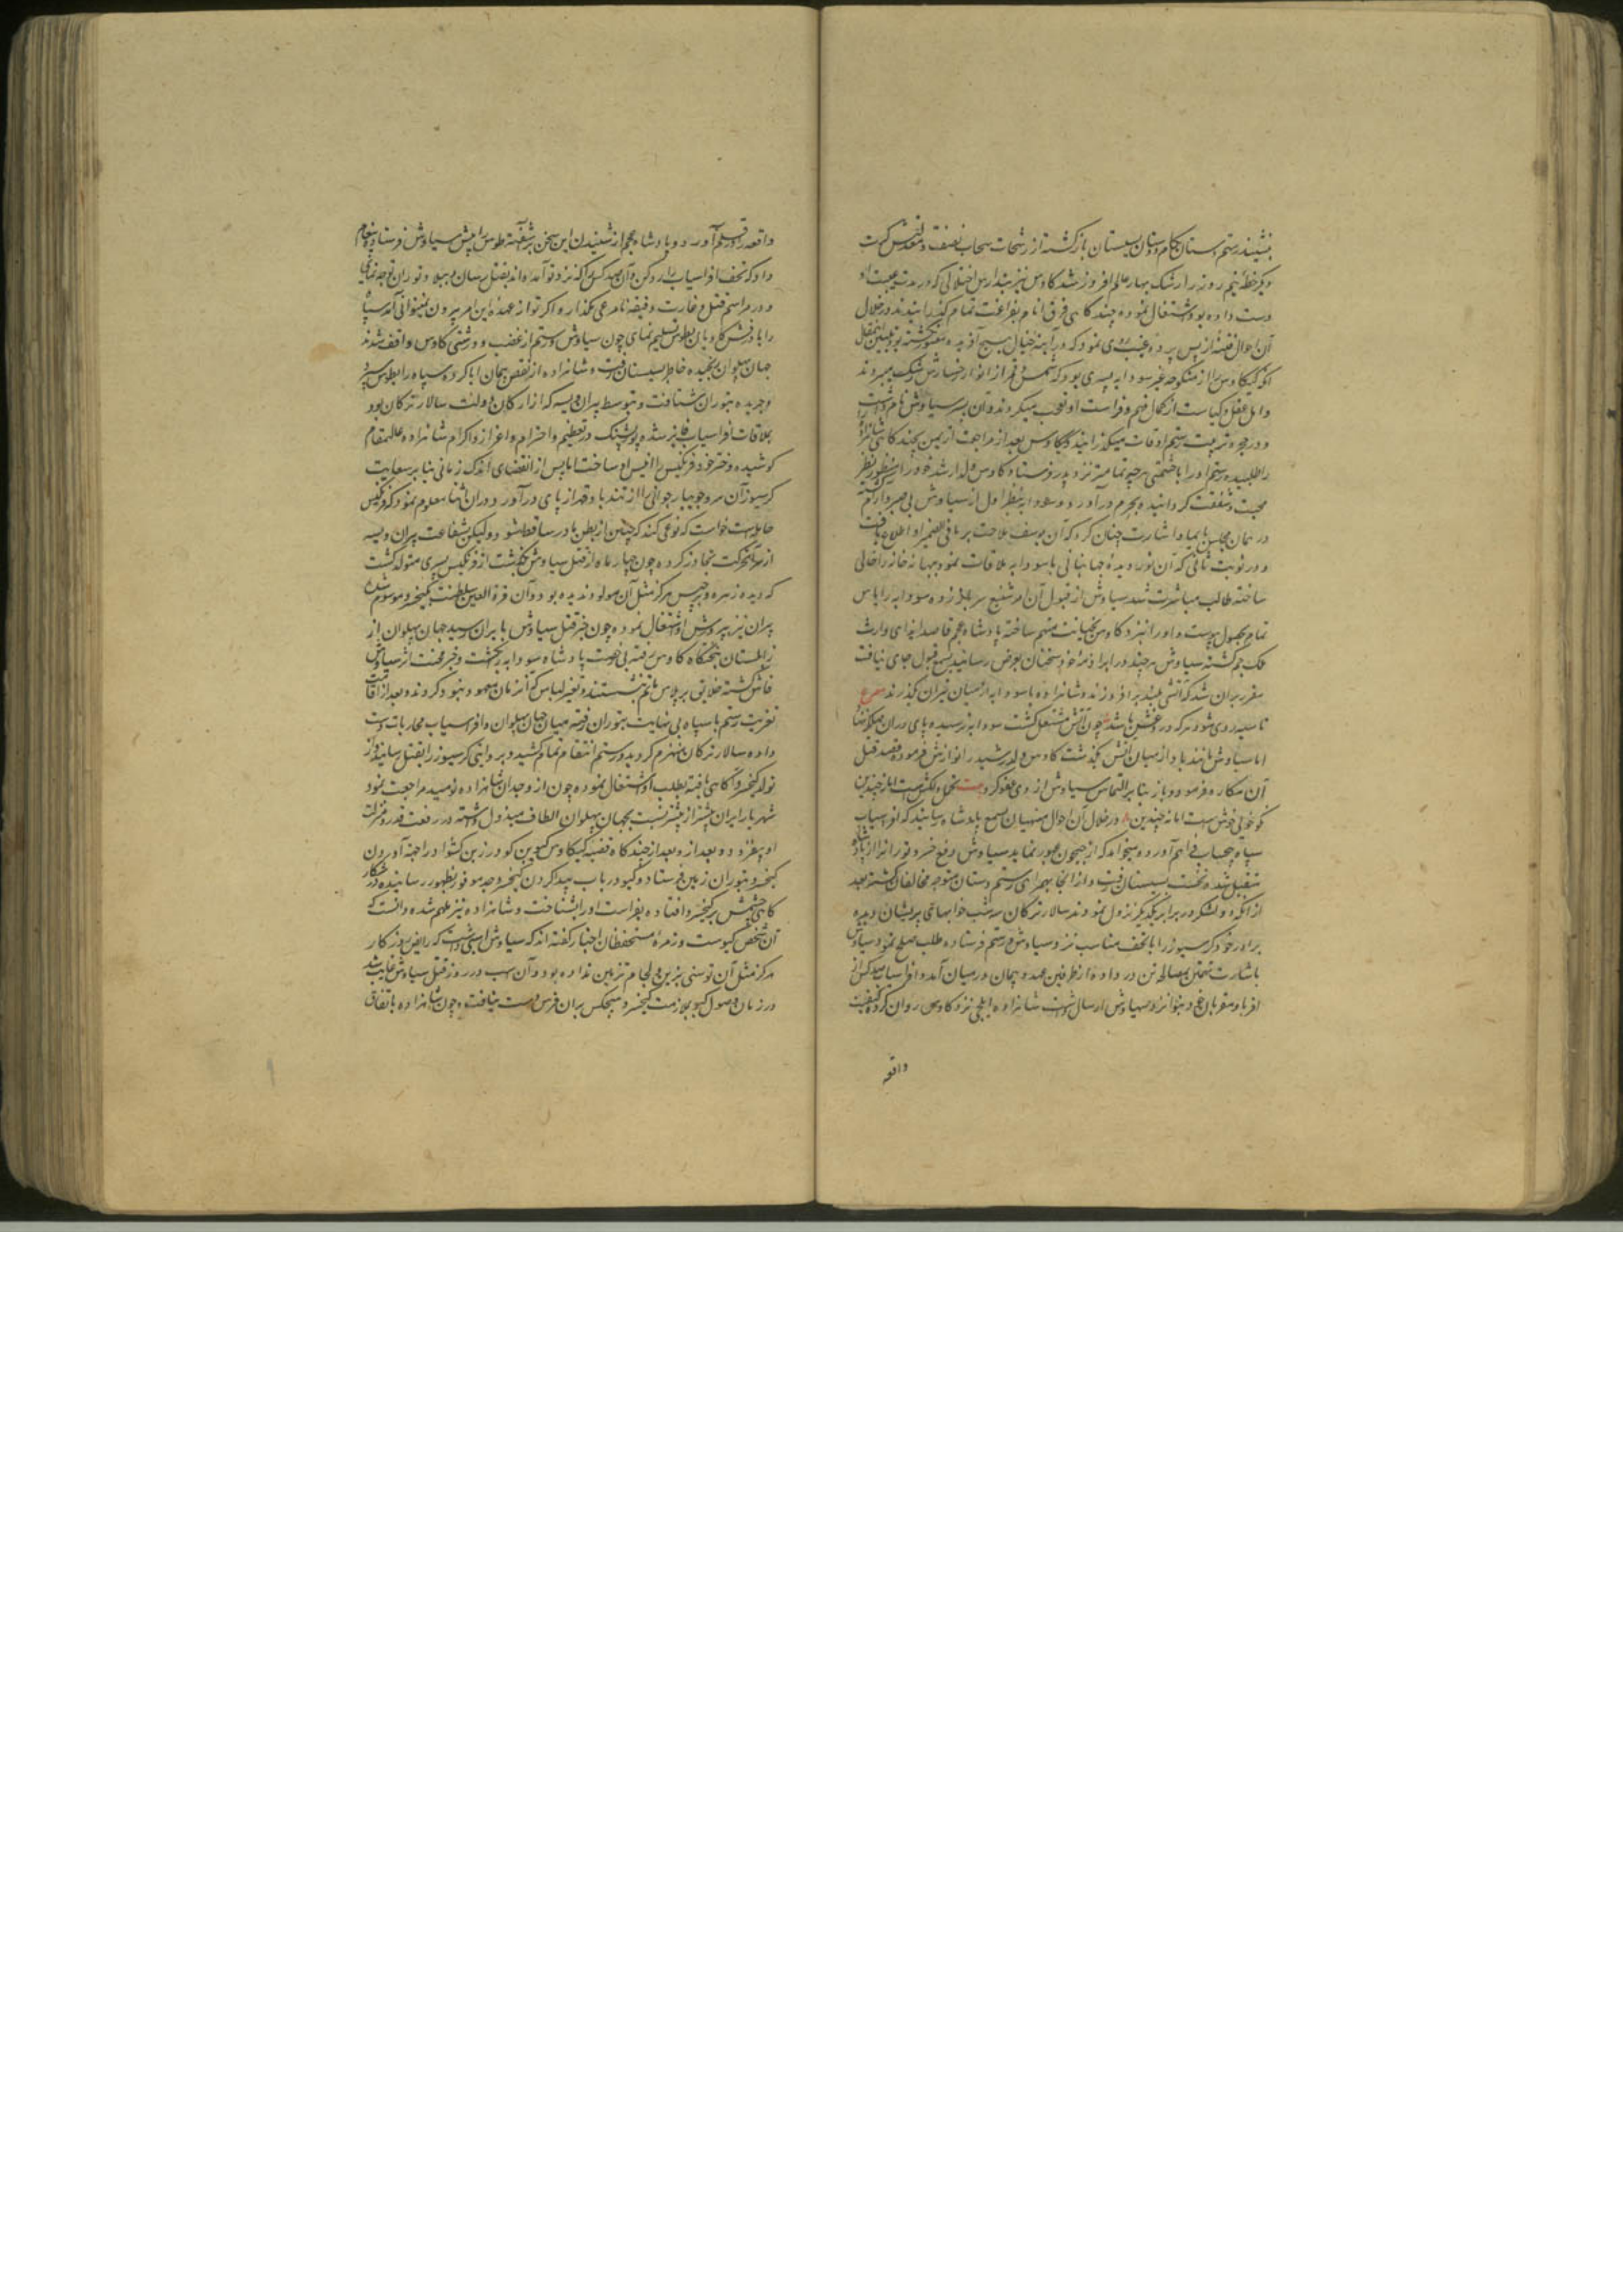 بنشیند رستم دستان بکام دوستان بسیستان بازگشته از رشحات سحاب نصفت و معدلتش کرت
دیگر خطهٔ نیم روز را رشک بهار عالم افروز شد کاوس نیز بتدارس اختلالی که در مدت غیبت او
دست داده بود اشتغال نموده چند کاهی فرق انام بفراغت تمام گذرانیدند در خلال
آن احوال فتنه از پس پرده غیب روی نمود که در آینه خیال هیچ آفریده متصور نکشته بود تبیین این مقال
آنکه کیکاوس را از منکوحه غیر سودابه پسری بود که شمس و قمر از انوار رخسارش رشک میبردند
و اهل عقل و کیاست از کمال فهم و فراست او تعجب میکردند و آن پسر سیاوش نام داشت
و در حجر تربیت رستم اوقات میگذرانید و کیکاوس بعد از مراجعت از یمن بچند کاهی شاهزاده
را طلبیده رستم او را با حشمتی هرچه تمامتر نزد پدر فرستاد کاوس ولد ارشد خود را منظور نظر
محبت و شفقت گردانیده بحرم درآورد و سودابه بنظر اول از سیاوش بی صبر و آرام گشته
در همان مجلس بایما و اشارت چنان کرد که آن یوسف ملاحت بر ما فی الضمیر او اطلاع یافت
و در نوبت ثانی که آن نور دیدهٔ جهانبانی با سودابه ملاقات نمود بهانه خانه را خالی
ساخته طالب مباشرت شد سیاوش از قبول آن امر شنیع سر باز زده سودابه را یاس
تمام بحصول پیوست و او را نزد کاوس بخیانت متهم ساخته پادشاه عجم قاصد ایذای وارث
ملک جم گشته سیاوش هرچند در ابراء ذمهٔ خود سخنان بعرض رسانید بسمع قبول جای نیافت
مقرر بران شد که آتشی بلند برافروزند و شاهزاده با سودابه از میان نیران گذرند مصرع
تا سیه روی شود هر که در و غش باشد چون آتش مشتعل گشت سودابه ترسیده پای در ان مهلکه ننهاد
اما سیاوش مانند باد از میان آتش بگذشت کاوس ولد رشید را نوازش فرموده قصد قتل
آن مکاره فرمود و باز بنا بر التماس سیاوش از وی عفو کرد بیت تحمل دلکش است اما نه چندین
نکو خوئی خوش است اما نه چندین در خلال آن احوال منهیان بسمع پادشاه رسانیدند که افراسیاب
سپاه بیحساب فراهم آورده میخواهد که از جیحون عبور نماید سیاوش دفع خسرو توران را از پادشاه
متقبل شده نخست بسیستان رفت و از انجا بهمراهی رستم دستان متوجه مخالفان گشته بعد
از آنکه دو لشکر در برابر یکدیگر نزول نمودند سالار ترکان سه شب خوابهای پریشان دیده
برادر خود کرسیوز را با تحف مناسب نزد سیاوش و رستم فرستاده طلب صلح نمود سیاوش
باشارت تهمتن بمصالحه تن در داده از طرفین عهد و پیمان در میان آمد و افراسیاب صد کس از
اقربا و مقربان خود بنوا نزد سیاوش ارسال داشت شاهزاده ایلچی نزد کاوس روان کرده کیفیت
واقعه
واقعه را در قلم آورد و پادشاه عجم از شنیدن این سخن برآشفته طوس را پیش سیاوش فرستاد و پیغام
داد که تحف افراسیاب را رد کن و آن صد کس را که نزد تو آمده اند بقتل رسان و ببلاد توران توجه نمای
و در مراسم قتل و غارت دقیقه نامرعی مگذار و اگر تو از عهدهٔ این امر بیرون نمیتوانی آمد سپاه
را با درفش کاویان بطوس تسلیم نمای چون سیاوش و رستم از غضب و درشتی کاوس واقف شدند
جهان پهلوان رنجیده خاطر بسیستان رفت و شاهزاده از نقض پیمان ابا کرده سپاه را بطوس سپرد
و جریده بتوران شتافت و بتوسط پیران ویسه که از ارکان دولت سالار ترکان بود
بملاقات افراسیاب فایز شده پور پشنگ در تعظیم و احترام و اعزاز و اکرام شاهزاده عالیمقام
کوشیده دختر خود فرنگیس را انیس او ساخت اما پس از انقضای اندک زمانی بنا بر سعایت
کرسیوز آن سرو جویبار جوانی را از تندباد قهر از پای درآورد و در ان اثنا معلوم نمود که فرنگیس
حامله است خواست که نوعی کند که جنین از بطن مادر ساقط شود و لیکن بشفاعت پیران ویسه
از سر آن حرکت تجاوز کرده چون چهار ماه از قتل سیاوش بگذشت از فرنگیس پسری متولد گشت
که دیده زهره و برجیس هرگز مثل آن مولود ندیده بود و آن قرة العین سلطنت بکیخسرو موسوم شده
پیران نیز بپرورش او اشتغال نموده چون خبر قتل سیاوش بایران رسید جهان پهلوان از
زابلستان بتختگاه کاوس رفته بی رخصت پادشاه سودابه را بکشت و خبر محنت اثر سیاوش
فاش گشته خلایق بر پلاس ماتم بنشستند و تغیر لباس که آنزمان معهود نبود کردند و بعد از اقامت
تعزیت رستم با سپاه بی نهایت بتوران رفته میان جهان پهلوان و افراسیاب محاربات دست
داده سالار ترکان منهزم گردید و رستم انتقام تمام کشید و بروایتی کرسیوز را بقتل رسانید و از
تولد کیخسرو آگاهی یافته بطلب او اشتغال نموده چون از وجدان شاهزاده نومید مراجعت نمود
شهریار ایران بیشتر از پیشتر نسبت بجهان پهلوان الطاف مبذول داشته در رفعت قدر و منزلت
او بیفزود و بعد از و بعد از چند کاه قضیه کیکاوس کیو بن کودرز بن کشواد را جهة آوردن
کیخسرو بتوران زمین فرستاد و کیو در باب پیدا کردن کیخسرو جد موفور بظهور رسانیده در شکار
کاهی چشمش بر کیخسرو افتاده بفراست او را بشناخت و شاهزاده نیز ملهم شده دانست که
آن شخص کیوست و زمرهٔ مستحفظان اخبار گفته اند که سیاوش اسبی داشت که رایض روزگار
هرگز مثل آن توسنی بزین و لجام تزیین نداده بود و آن اسب در روز قتل سیاوش غایب شد
در زمان وصول کیو بملازمت کیخسرو هیچکس بران فرس دست نیافت و چون شاهزاده باتفاق